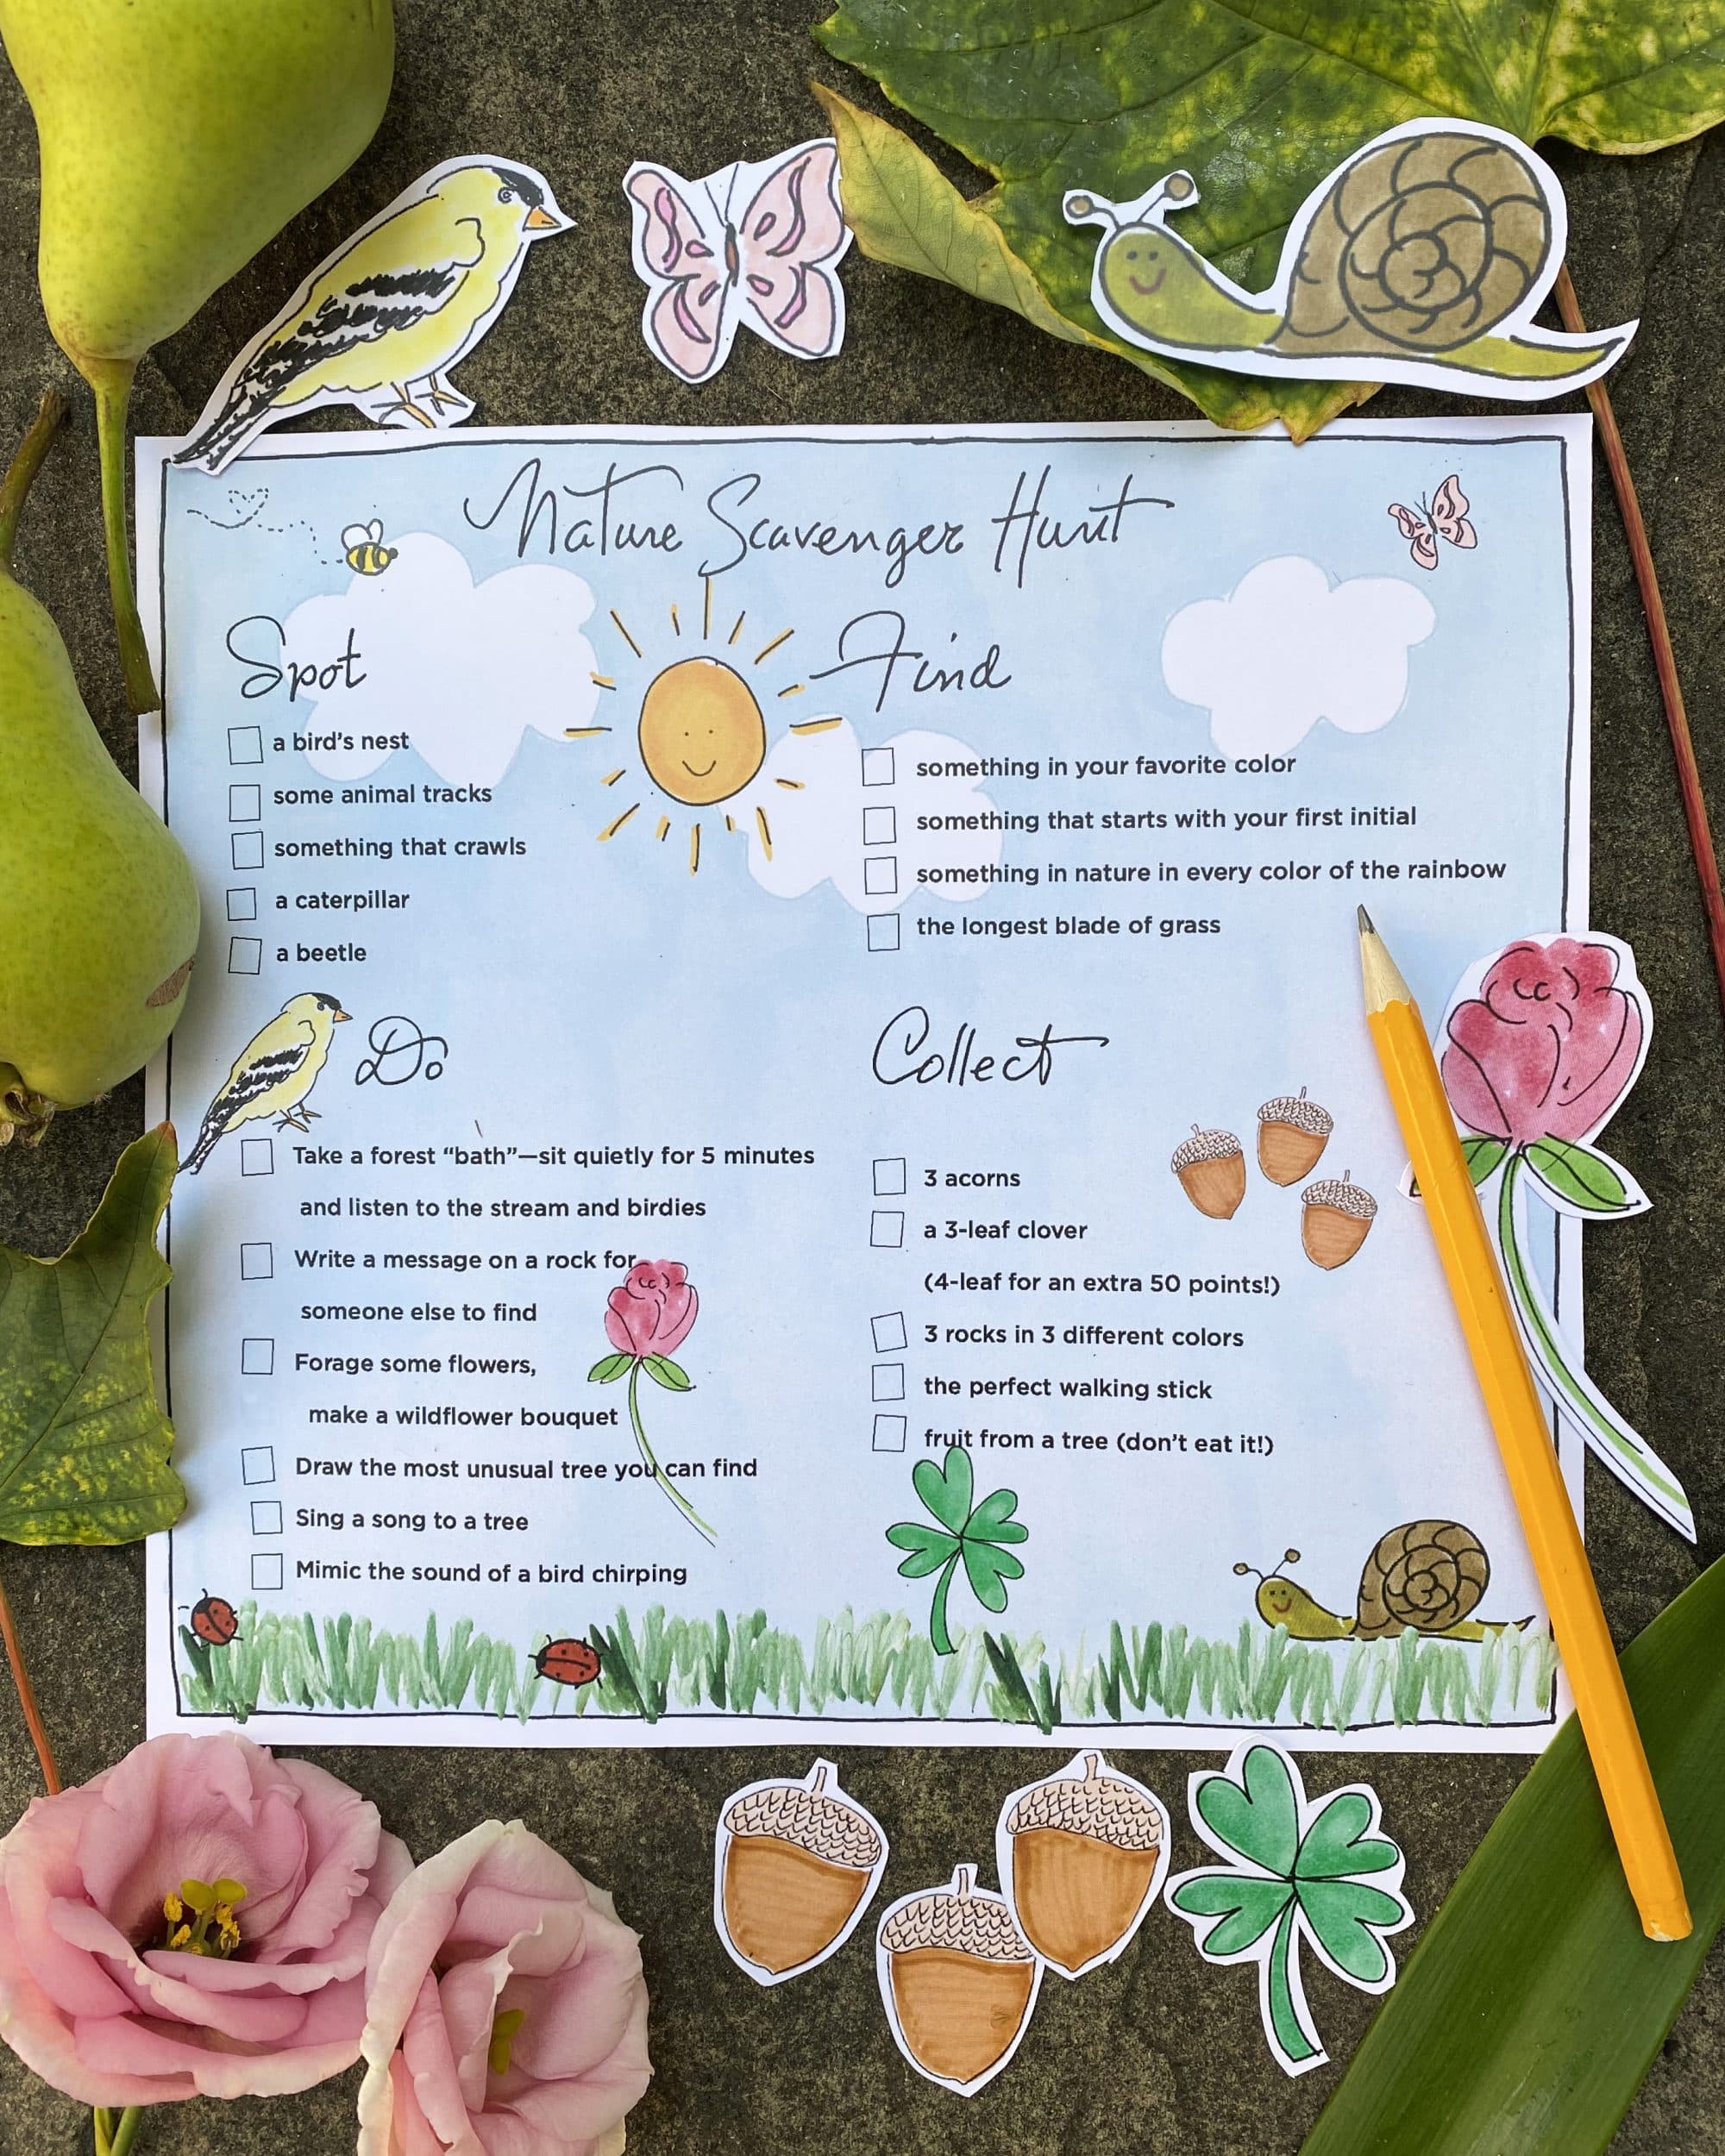 Nature Scavenger Hunt
Spot
a bird's nest
some animal tracks
something that crawls
a caterpillar
a beetle
Find
something in your favorite color
something that starts with your first initial
something in nature in every color of the rainbow
the longest blade of grass
Do
Take a forest “bath”—sit quietly for 5 minutes
and listen to the stream and birdies
Write a message on a rock for
someone else to find
Forage some flowers,
make a wildflower bouquet
Draw the most unusual tree you can find
Sing a song to a tree
Mimic the sound of a bird chirping
Collect
3 acorns
a 3-leaf clover
(4-leaf for an extra 50 points!)
3 rocks in 3 different colors
the perfect walking stick
fruit from a tree (don't eat it!)